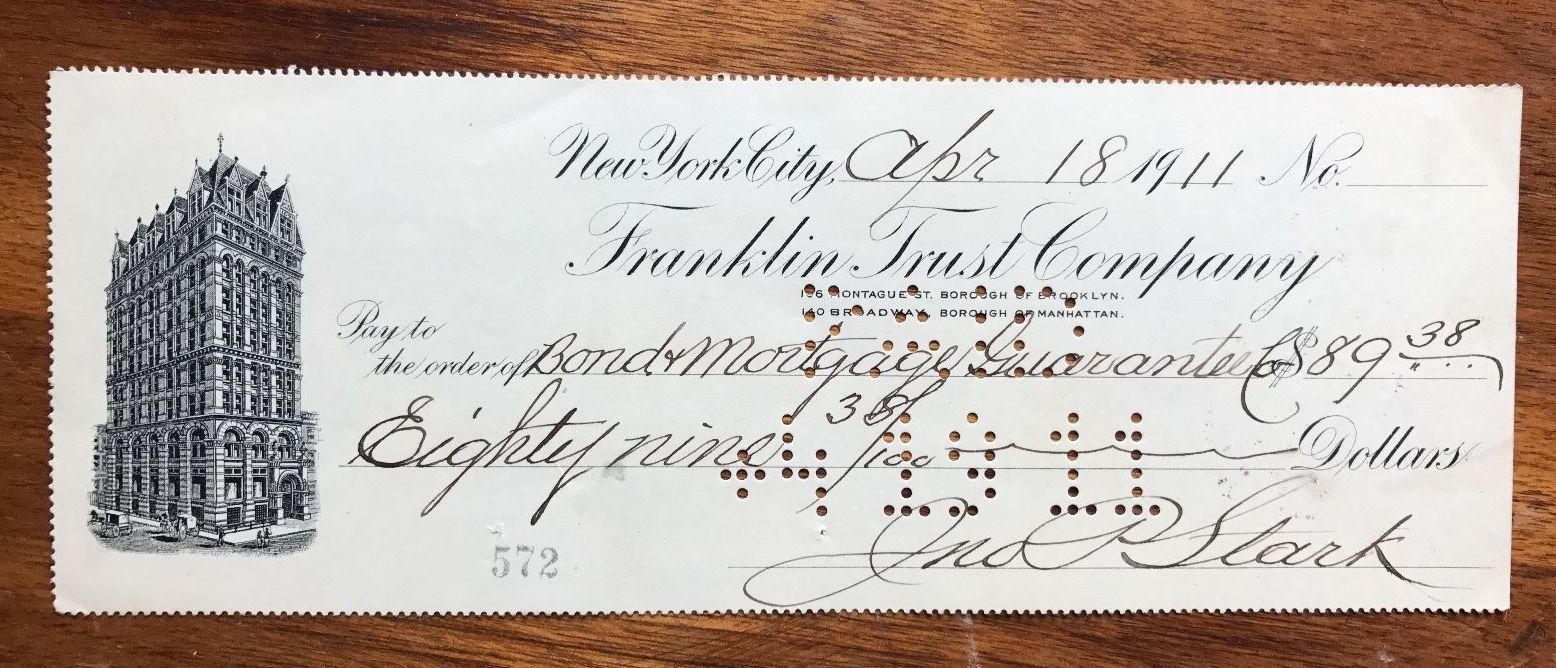 New York City, Apr 18 1911 No.
Franklin Trust Company
166 MONTAGUE ST. BOROUGH OF BROOKLYN.
140 BROADWAY, BOROUGH OF MANHATTAN.
Pay to
the order of Bond & Mortgage Guarantee Co $89 38
Eighty nine 38/100 Dollars
PAID
4 19 11
Jno P Stark
572